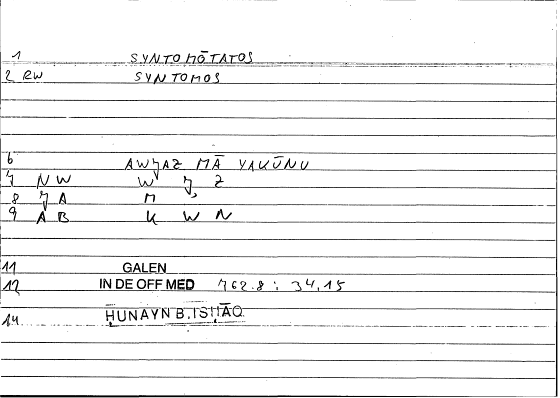 1 SYNTOMŌTATOS
2 RW SYNTOMOS
6 AWǦAZ MĀ YAKŪNU
7 NW W Ǧ Z
8 ǦA M
9 AB K W N
11 GALEN
12 IN DE OFF MED 762.8 : 34,15
14 ḤUNAYN B. ISḤĀQ